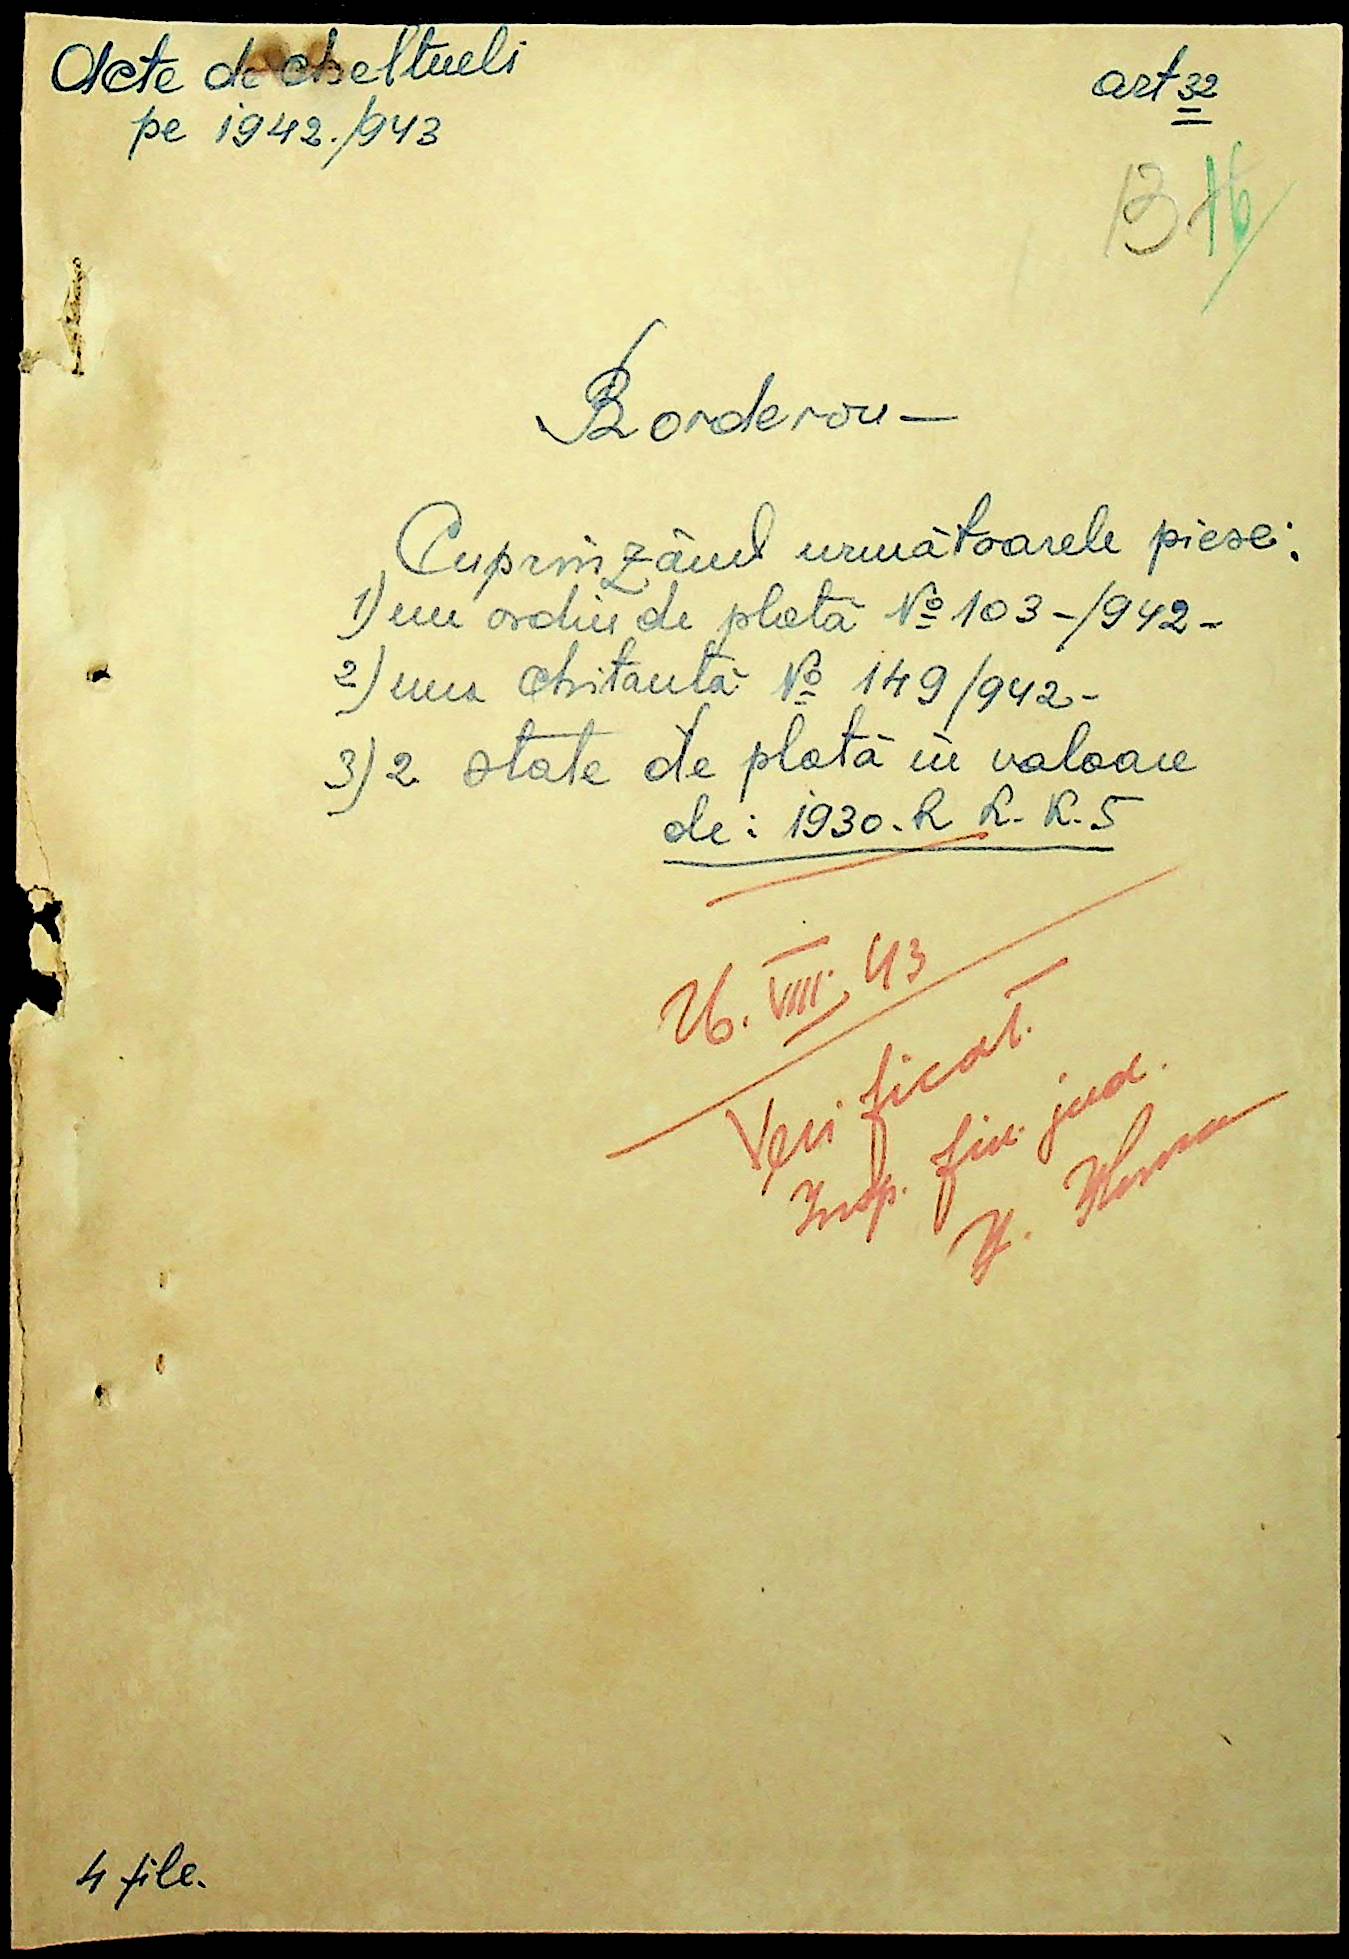 Acte de cheltueli
pe 1942./943
art 32
13 16
Borderou —
Cuprinzând următoarele piese:
1) un ordin de plată № 103-/942-
2) una chitantă № 149/942-
3) 2 state de plată în valoare
de: 1930.R R. K. S
26. VIII. 43
Verificat.
Insp. fin. jud.
4 file.